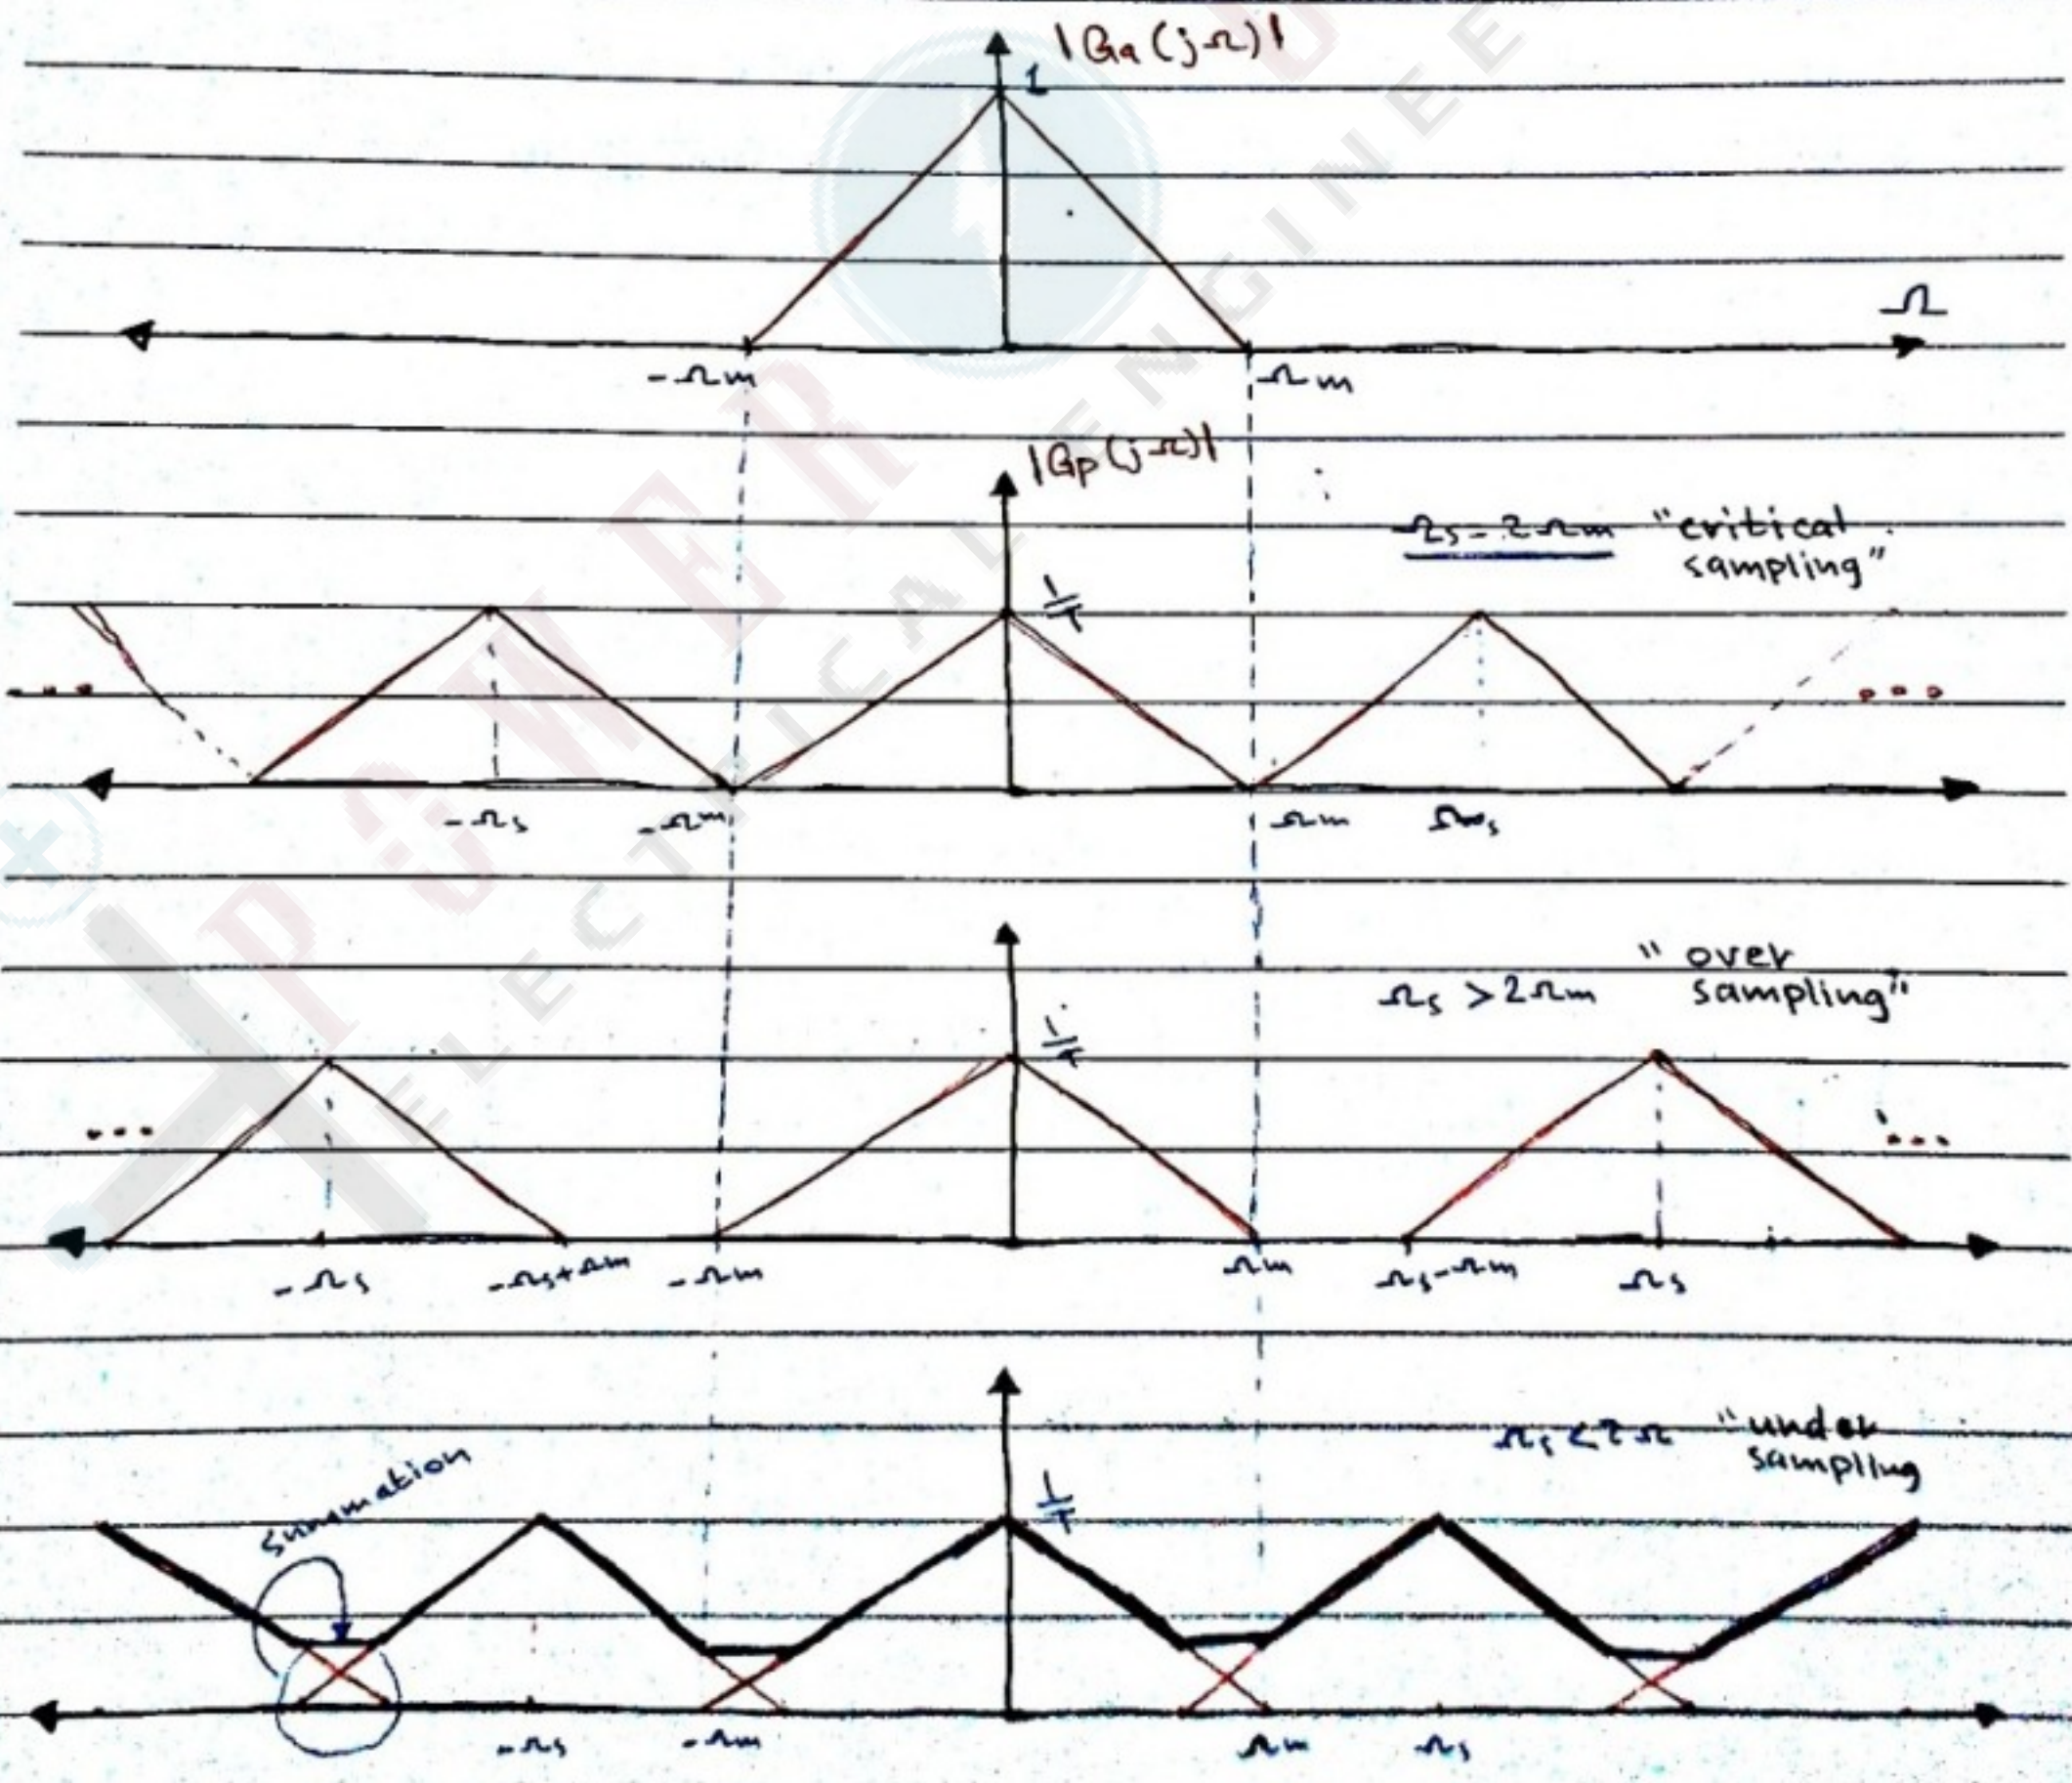 |Ga(jΩ)|
1
Ω
-Ωm Ωm
|Gp(jΩ)|
Ωs = 2Ωm "critical
sampling"
1/T
... ...
-Ωs -Ωm Ωm Ωs
"over
Ωs > 2Ωm sampling"
1/T
... ...
-Ωs -Ωs+Ωm -Ωm Ωm Ωs-Ωm Ωs
Ωs < 2Ω "under
sampling
summation
1/T
-Ωs -Ωm Ωm Ωs
POWER
ELECTRICAL ENGINEE